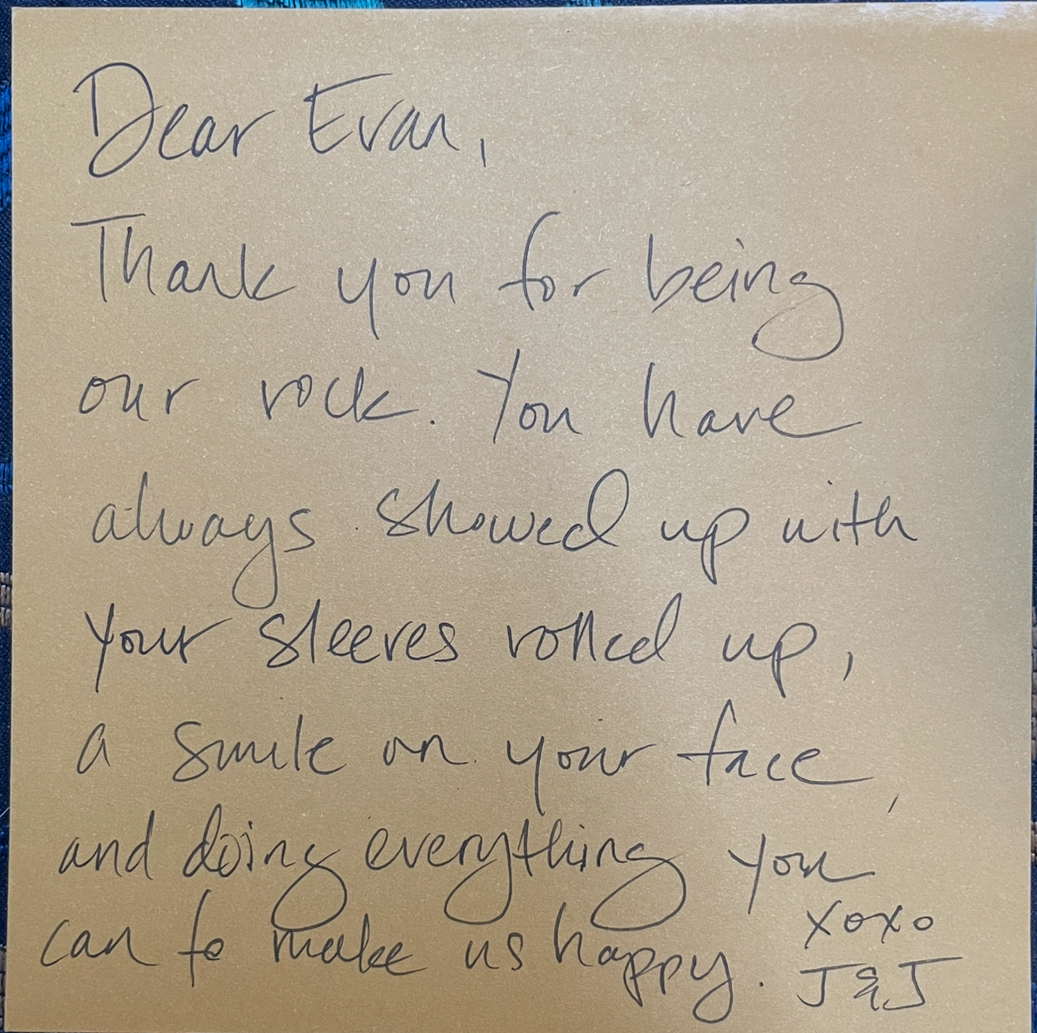 Dear Evan,
Thank you for being
our rock. You have
always showed up with
your sleeves rolled up,
a smile on your face,
and doing everything you
can to make us happy.
xoxo
J & J